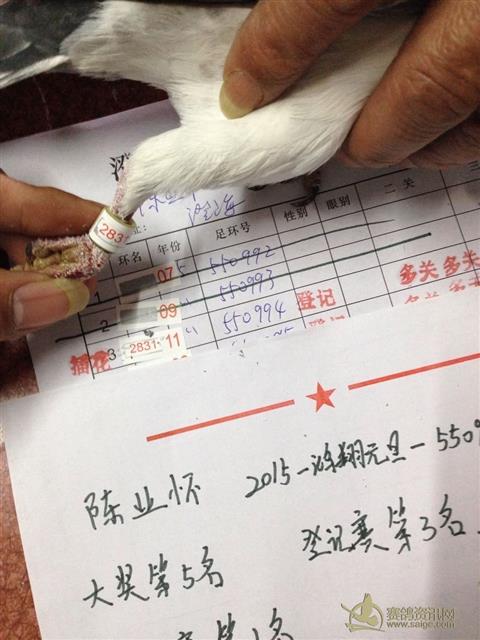 2831
环名 年份 足环号 性别 眼别 二关 三
1 07 550992
2 09 550993 多关 多关
3 2831 11 550994 登记
插花
陈业怀 2015-
元旦-550
大奖第5名 登记赛第3名
第1名
赛鸽资讯网
www.saige.com